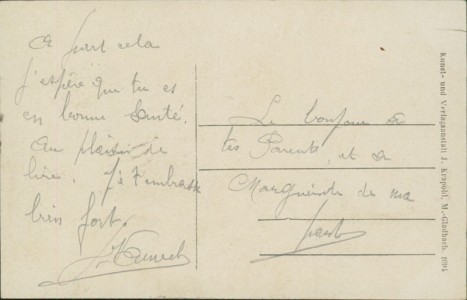 A part cela
j'espère que tu es
en bonne Santé.
Au plaisir de
lire. Je t'embrasse
bien fort.
Le bonjour à
tes Parents, et à
Marguerite de ma
part.
Kunst- und Verlagsanstalt J. Krapohl, M.-Gladbach. 1094